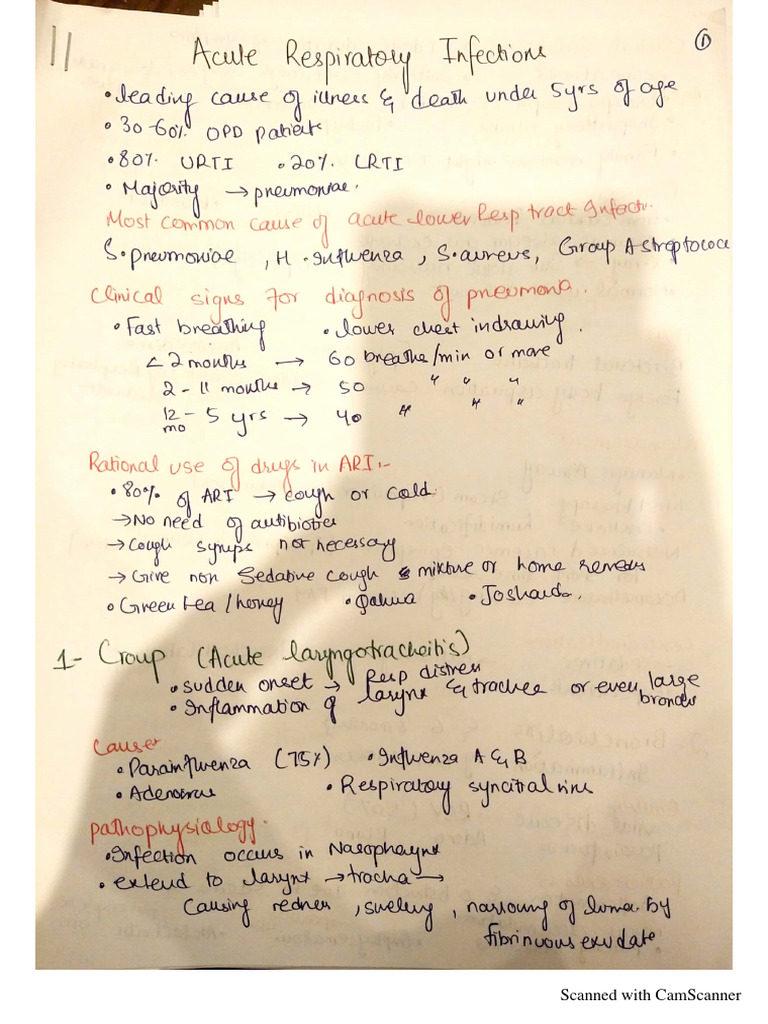 11
Acute Respiratory Infections
①
• leading cause of illness & death under 5yrs of age
• 30-60% OPD patients
• 80% URTI • 20% LRTI
• Majority → pneumoniae.
Most common cause of acute lower Resp tract Infect.
S.pneumoniae, H.Influenza, S.aureus, Group A streptococc
Clinical signs for diagnosis of pneumona.
• Fast breathing • lower chest indrawing.
< 2 months → 60 breaths/min or more
2 - 11 months → 50 " " "
12 mo - 5 yrs → 40 " " "
Rational use of drugs in ARI:-
• 80% of ARI → cough or cold.
→ No need of antibiotics
→ Cough syrups not necessary
→ Give non sedative cough mixture or home remedies
• Green tea/honey • Qahwa • Joshanda.
1- Croup (Acute laryngotracheitis)
• sudden onset → Resp distress
• Inflammation of larynx & trachea or even large bronces
Causes
• Parainfluenza (75%) • Influenza A & B
• Adenovirus • Respiratory syncitral virus
pathophysiology.
• Infection occurs in Nasopharynx
• extend to larynx → trocha →
Causing redness, sweling, narrowing of lumen by
fibrinuous exudate
Scanned with CamScanner